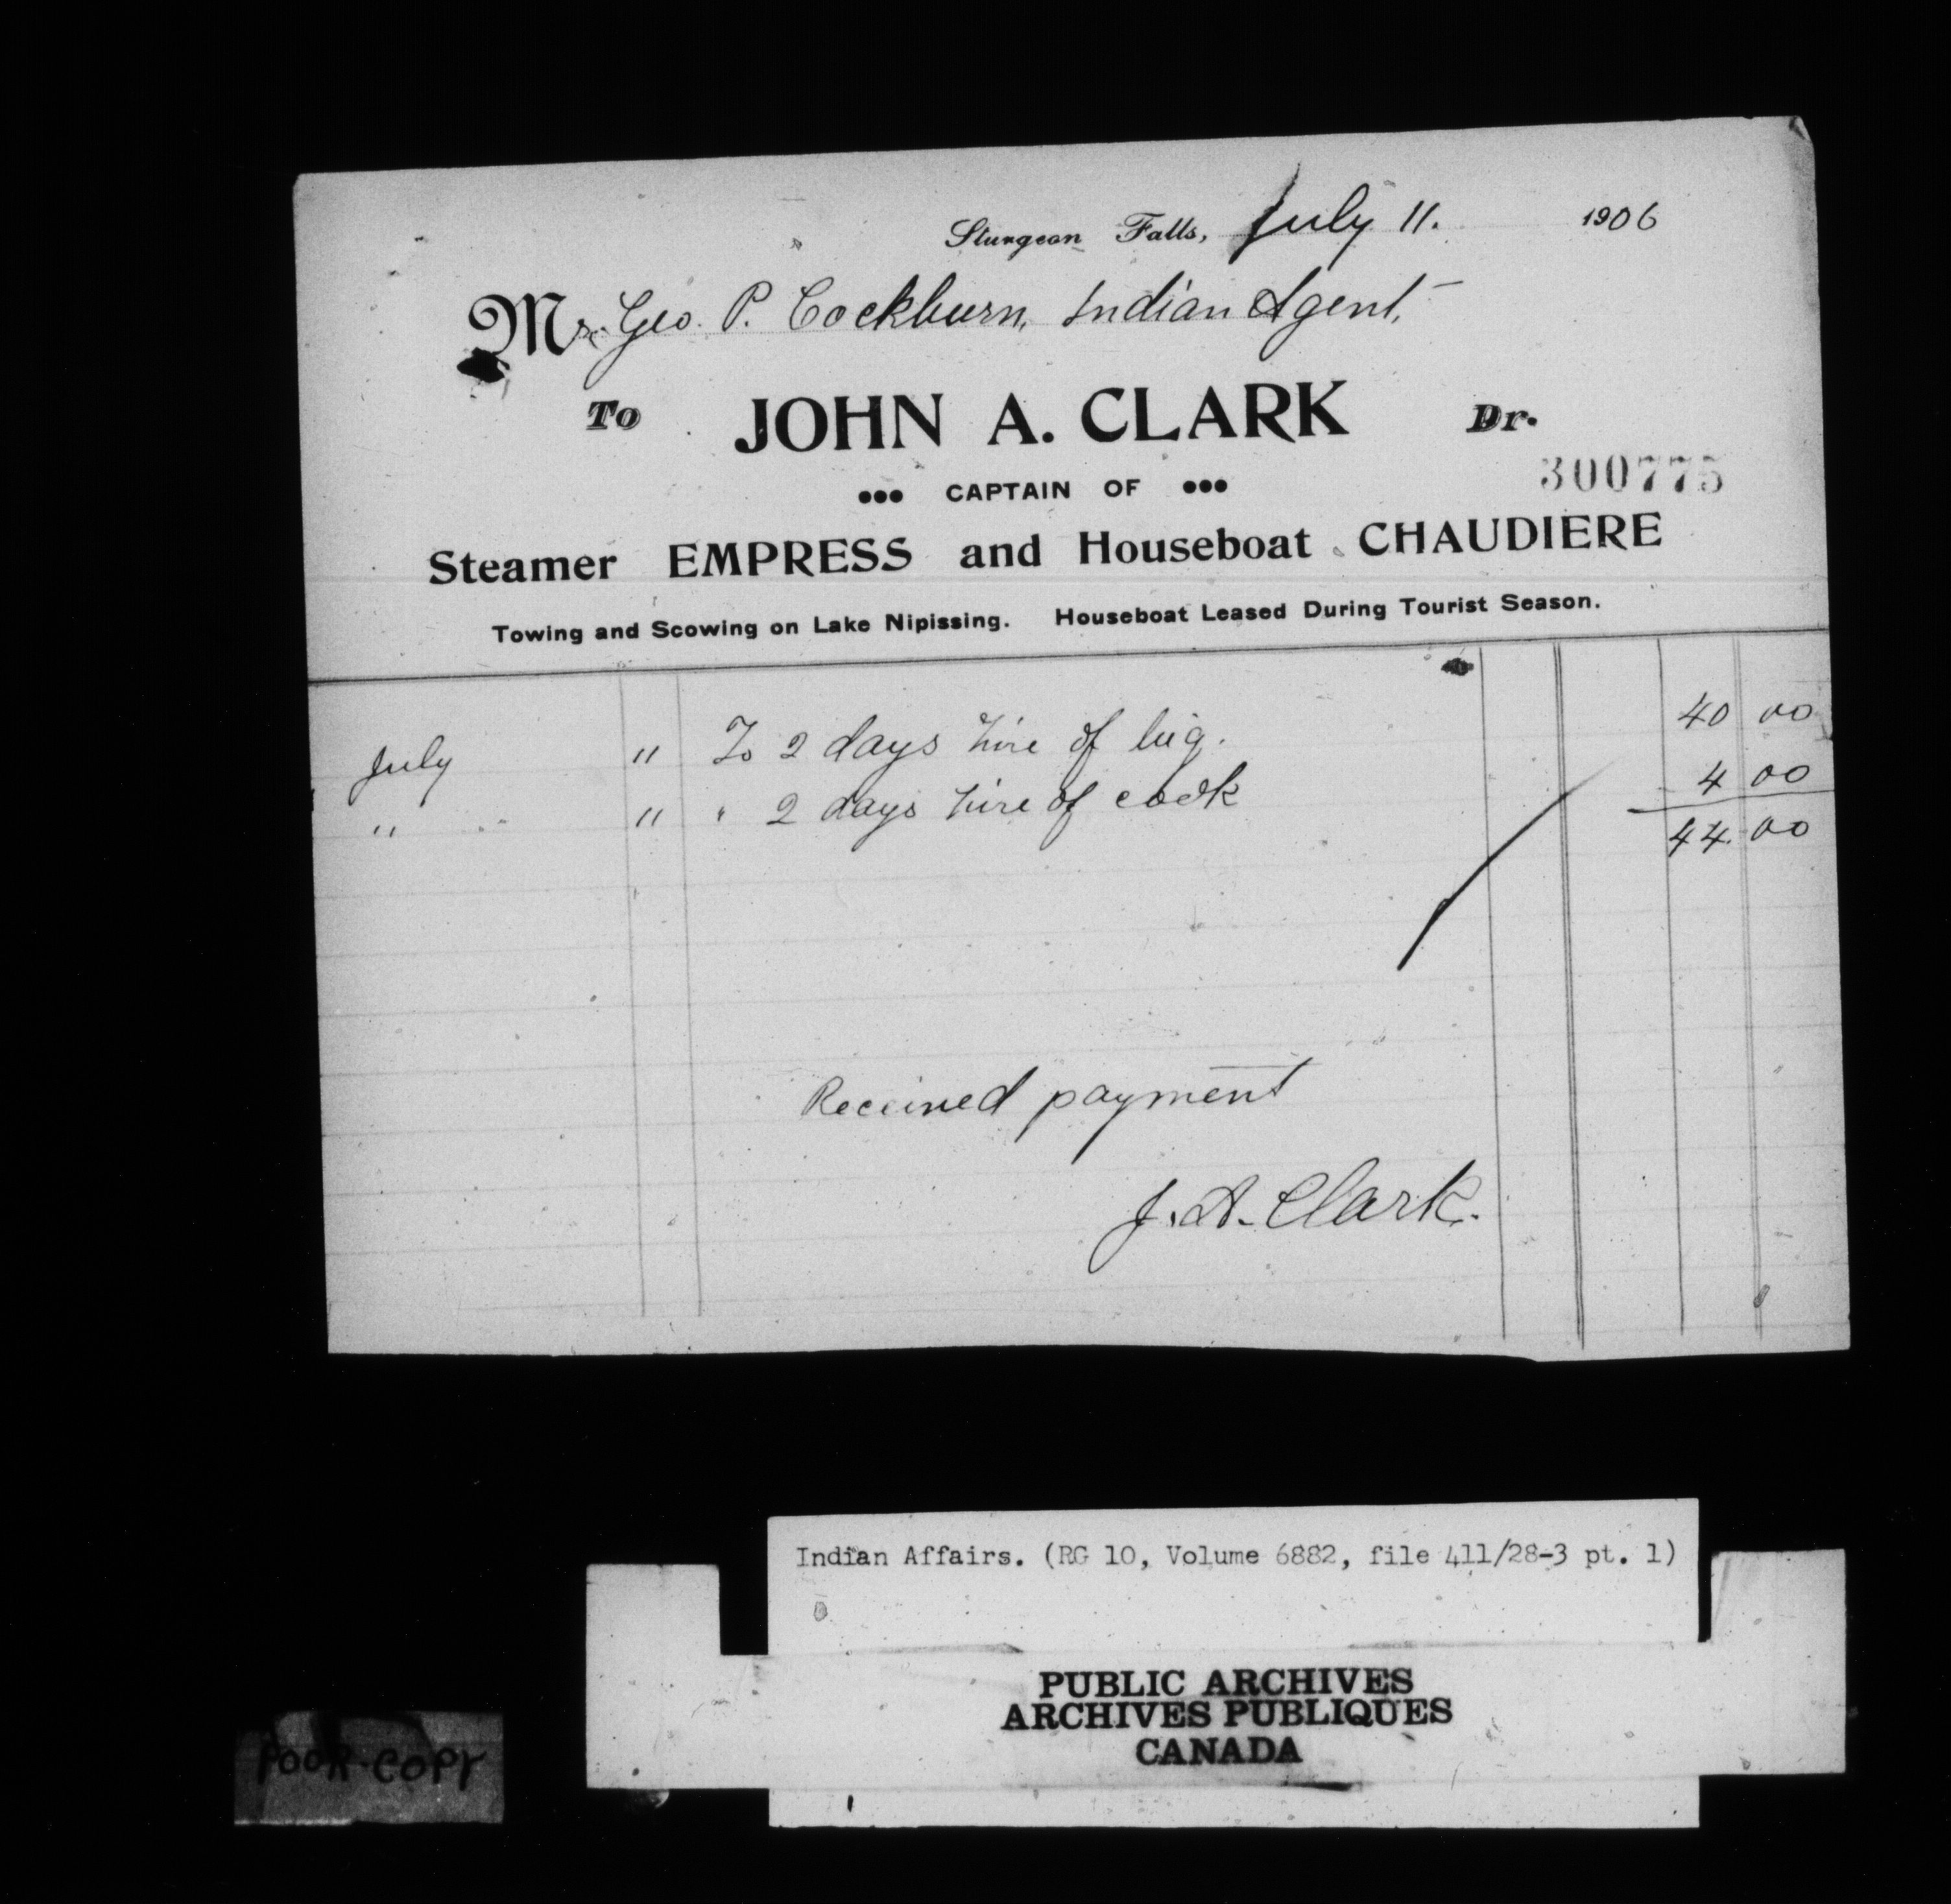 Sturgeon Falls, July 11. 1906
Mr. Geo. P. Cockburn, Indian Agent,
To JOHN A. CLARK Dr.
300775
••• CAPTAIN OF •••
Steamer EMPRESS and Houseboat CHAUDIERE
Towing and Scowing on Lake Nipissing. Houseboat Leased During Tourist Season.
July 11 To 2 days hire of 40 00
" 11 " 2 days hire of cook 4 00
44.00
Received payment
J. A. Clark.
Indian Affairs. (RG 10, Volume 6882, file 411/28-3 pt. 1)
PUBLIC ARCHIVES
ARCHIVES PUBLIQUES
CANADA
POOR COPY